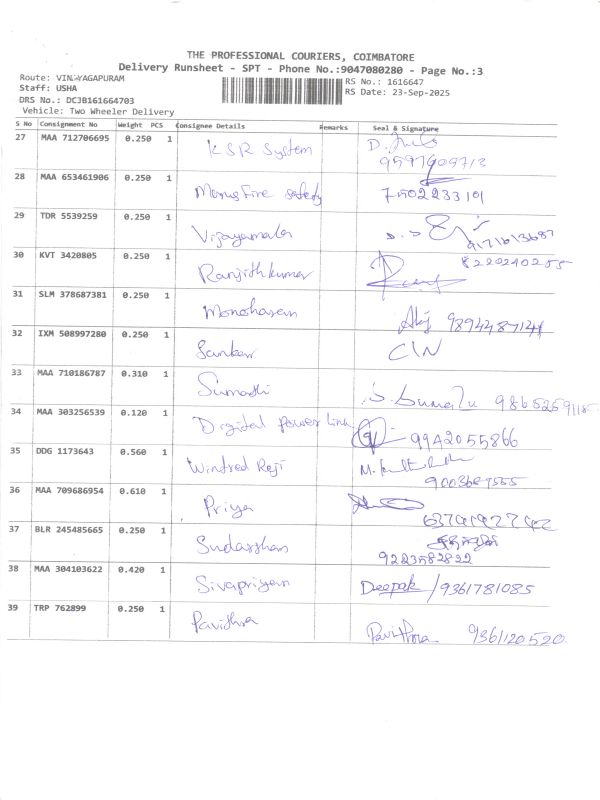 THE PROFESSIONAL COURIERS, COIMBATORE
Delivery Runsheet - SPT - Phone No.:9047080280 - Page No.:3
Route: VINAYAGAPURAM RS No.: 1616647
Staff: USHA RS Date: 23-Sep-2025
DRS No.: DCJB161664703
Vehicle: Two Wheeler Delivery
S No Consignment No Weight PCS Consignee Details Remarks Seal & Signature
27 MAA 712706695 0.250 1 KSR System
28 MAA 653461906 0.250 1 Marus Fire safety 7502233101
29 TDR 5539259 0.250 1 Vijayamala
30 KVT 3420805 0.250 1 Ranjithkumar 8220240255
31 SLM 378687381 0.250 1 Manoharan 9894487144
32 IXM 508997280 0.250 1 Sankar C/N
33 MAA 710186787 0.310 1 Sumathi
34 MAA 303256539 0.120 1 Digital power link 9942055866
35 DDG 1173643 0.560 1 Winfred Raji
36 MAA 709686954 0.610 1 Priya
37 BLR 245485665 0.250 1 Sudarshan
9223582822
38 MAA 304103622 0.420 1 Sivapriyan Deepak / 9361781085
39 TRP 762899 0.250 1 Pavithra Pavithra 9361120520